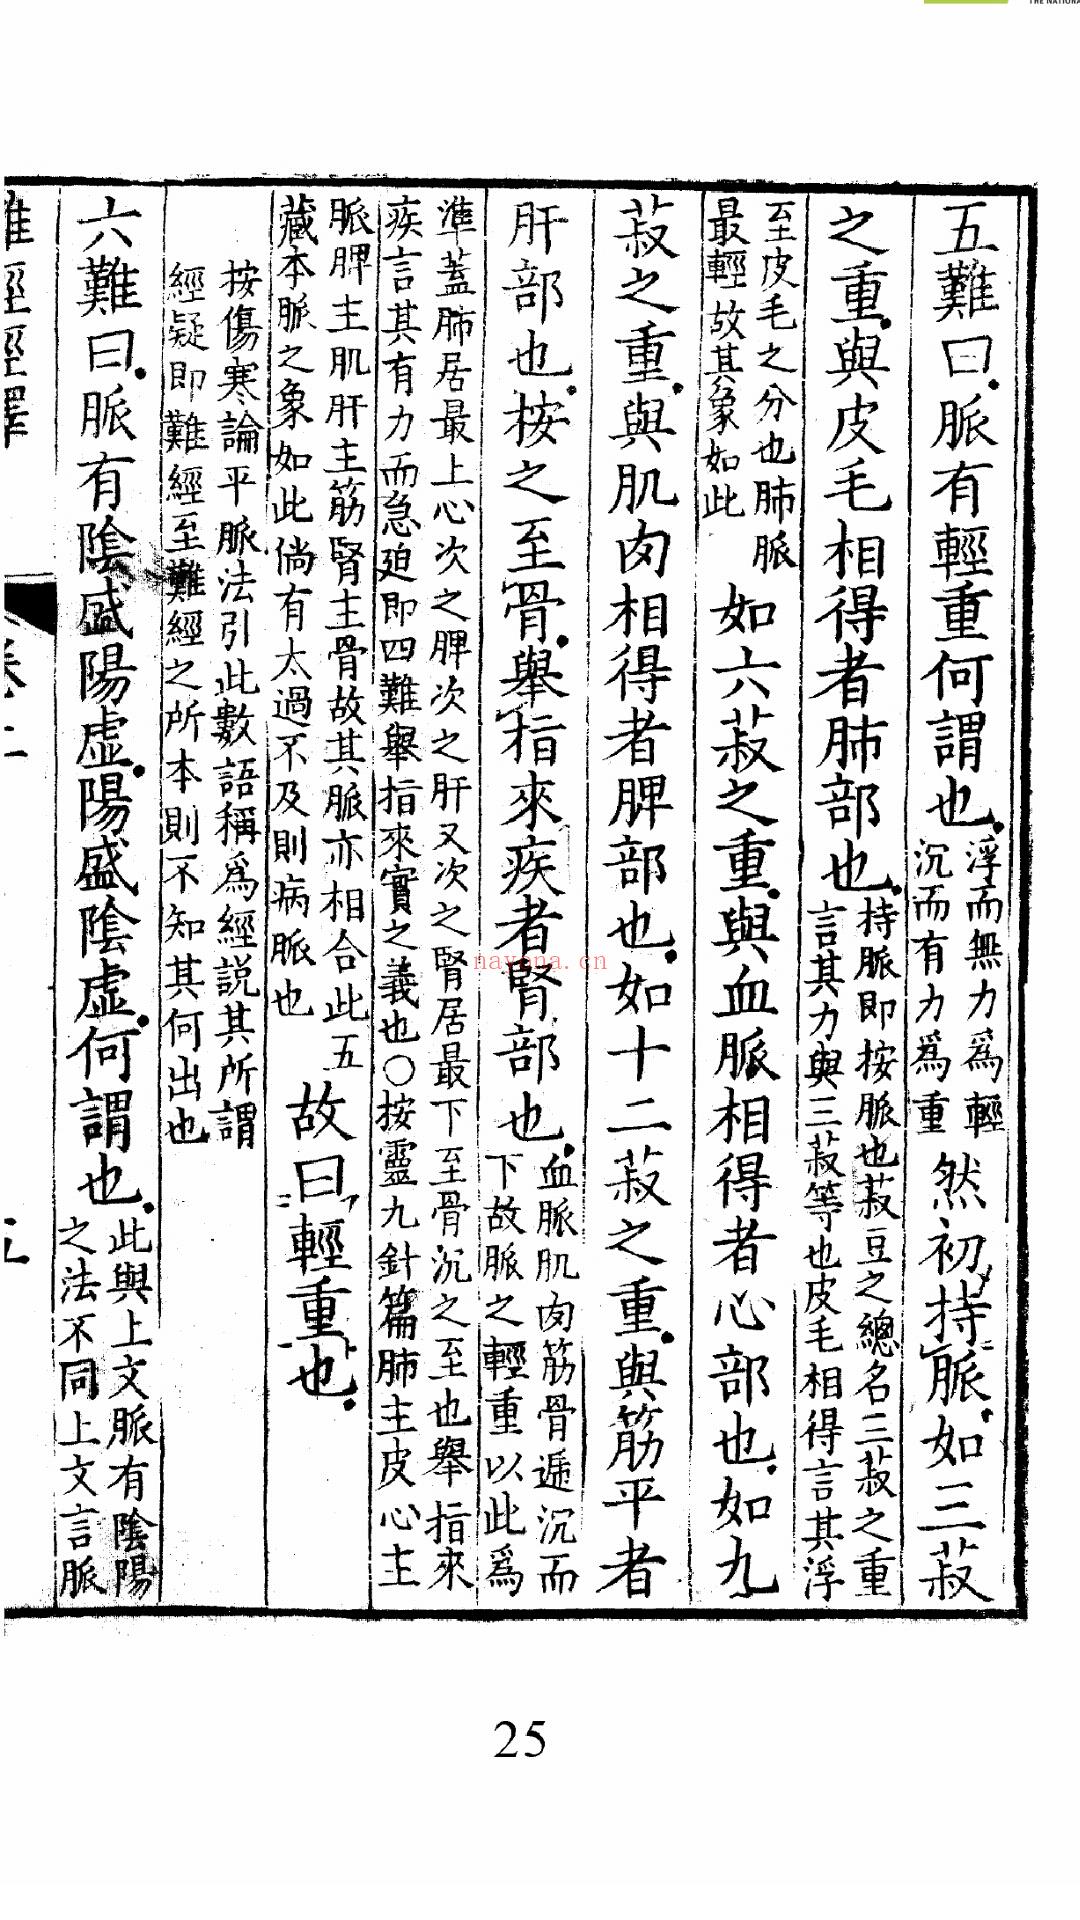 THE NATIONA
五難曰.脈有輕重何謂也.浮而無力爲輕沉而有力爲重然初持脈.如三菽
之重.與皮毛相得者肺部也.持脈即按脈也菽豆之總名三菽之重言其力與三菽等也皮毛相得言其浮
至皮毛之分也肺脈最輕故其象如此如六菽之重.與血脈相得者心部也.如九
菽之重.與肌肉相得者脾部也.如十二菽之重.與筋平者
肝部也.按之至骨.舉指來疾者腎部也.血脈肌肉筋骨遞沉而下故脈之輕重以此爲
準蓋肺居最上心次之脾次之肝又次之腎居最下至骨沉之至也舉指來
疾言其有力而急迫即四難舉指來實之義也○按靈九針篇肺主皮心主
脈脾主肌肝主筋腎主骨故其脈亦相合此五藏本脈之象如此倘有太過不及則病脈也故曰輕重也.
按傷寒論平脈法引此數語稱爲經説其所謂
經疑即難經至難經之所本則不知其何出也
六難曰.脈有陰盛陽虛.陽盛陰虛.何謂也.此與上文脈有陰陽之法不同上文言脈
nayona.cn
25